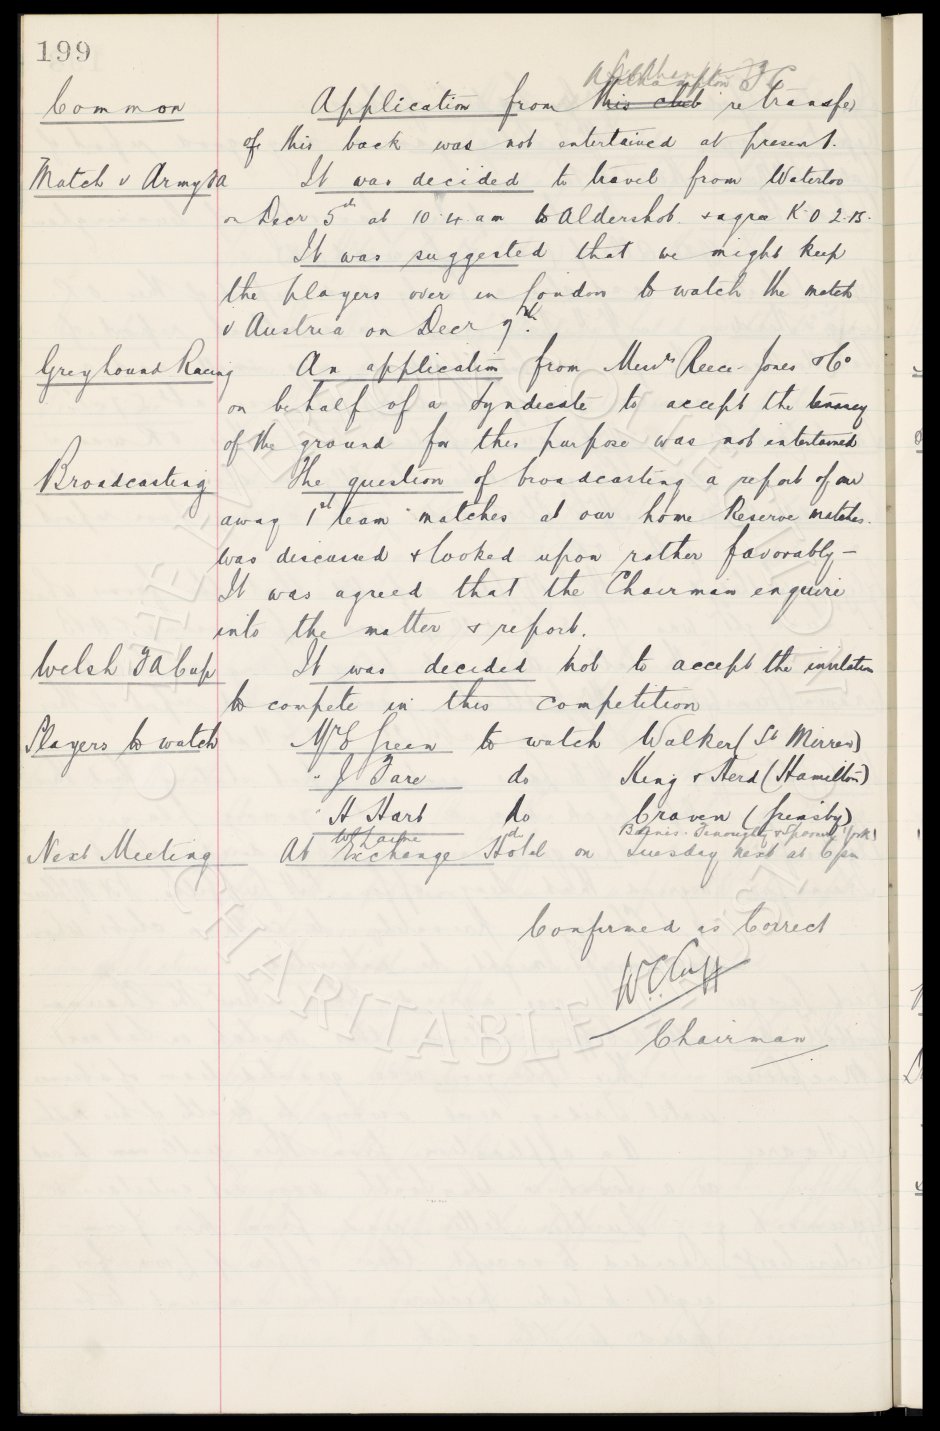 199
Wolverhampton FC
Common Application from this club re transfer
of this back was not entertained at present.
Match v Army FA It was decided to travel from Waterloo
on Decr 5th at 10.4 am to Aldershot & agree K.O 2.15.
It was suggested that we might keep
the players over in London to watch the match
v Austria on Decr 7th.
Greyhound Racing An application from Messrs Reece-Jones & Co
on behalf of a Syndicate to accept the tenancy
of the ground for this purpose was not entertained
Broadcasting The question of broadcasting a report of our
away 1st team matches at our home Reserve matches.
was discussed & looked upon rather favorably -
It was agreed that the Chairman enquire
into the matter & report.
Welsh FA Cup It was decided not to accept the invitation
to compete in this competition
Players to watch Mr E Green to watch Walker (St Mirren)
" J Fare do King & Herd (Hamilton)
" A Hart do Craven (Grimsby)
W C Layne Baines & Spooner (York)
Next Meeting At Exchange Hotel on Tuesday next at 6pm
Confirmed as Correct
W.C. Cuff
Chairman
THE EVERTON COLLECTION
CHARITABLE TRUST